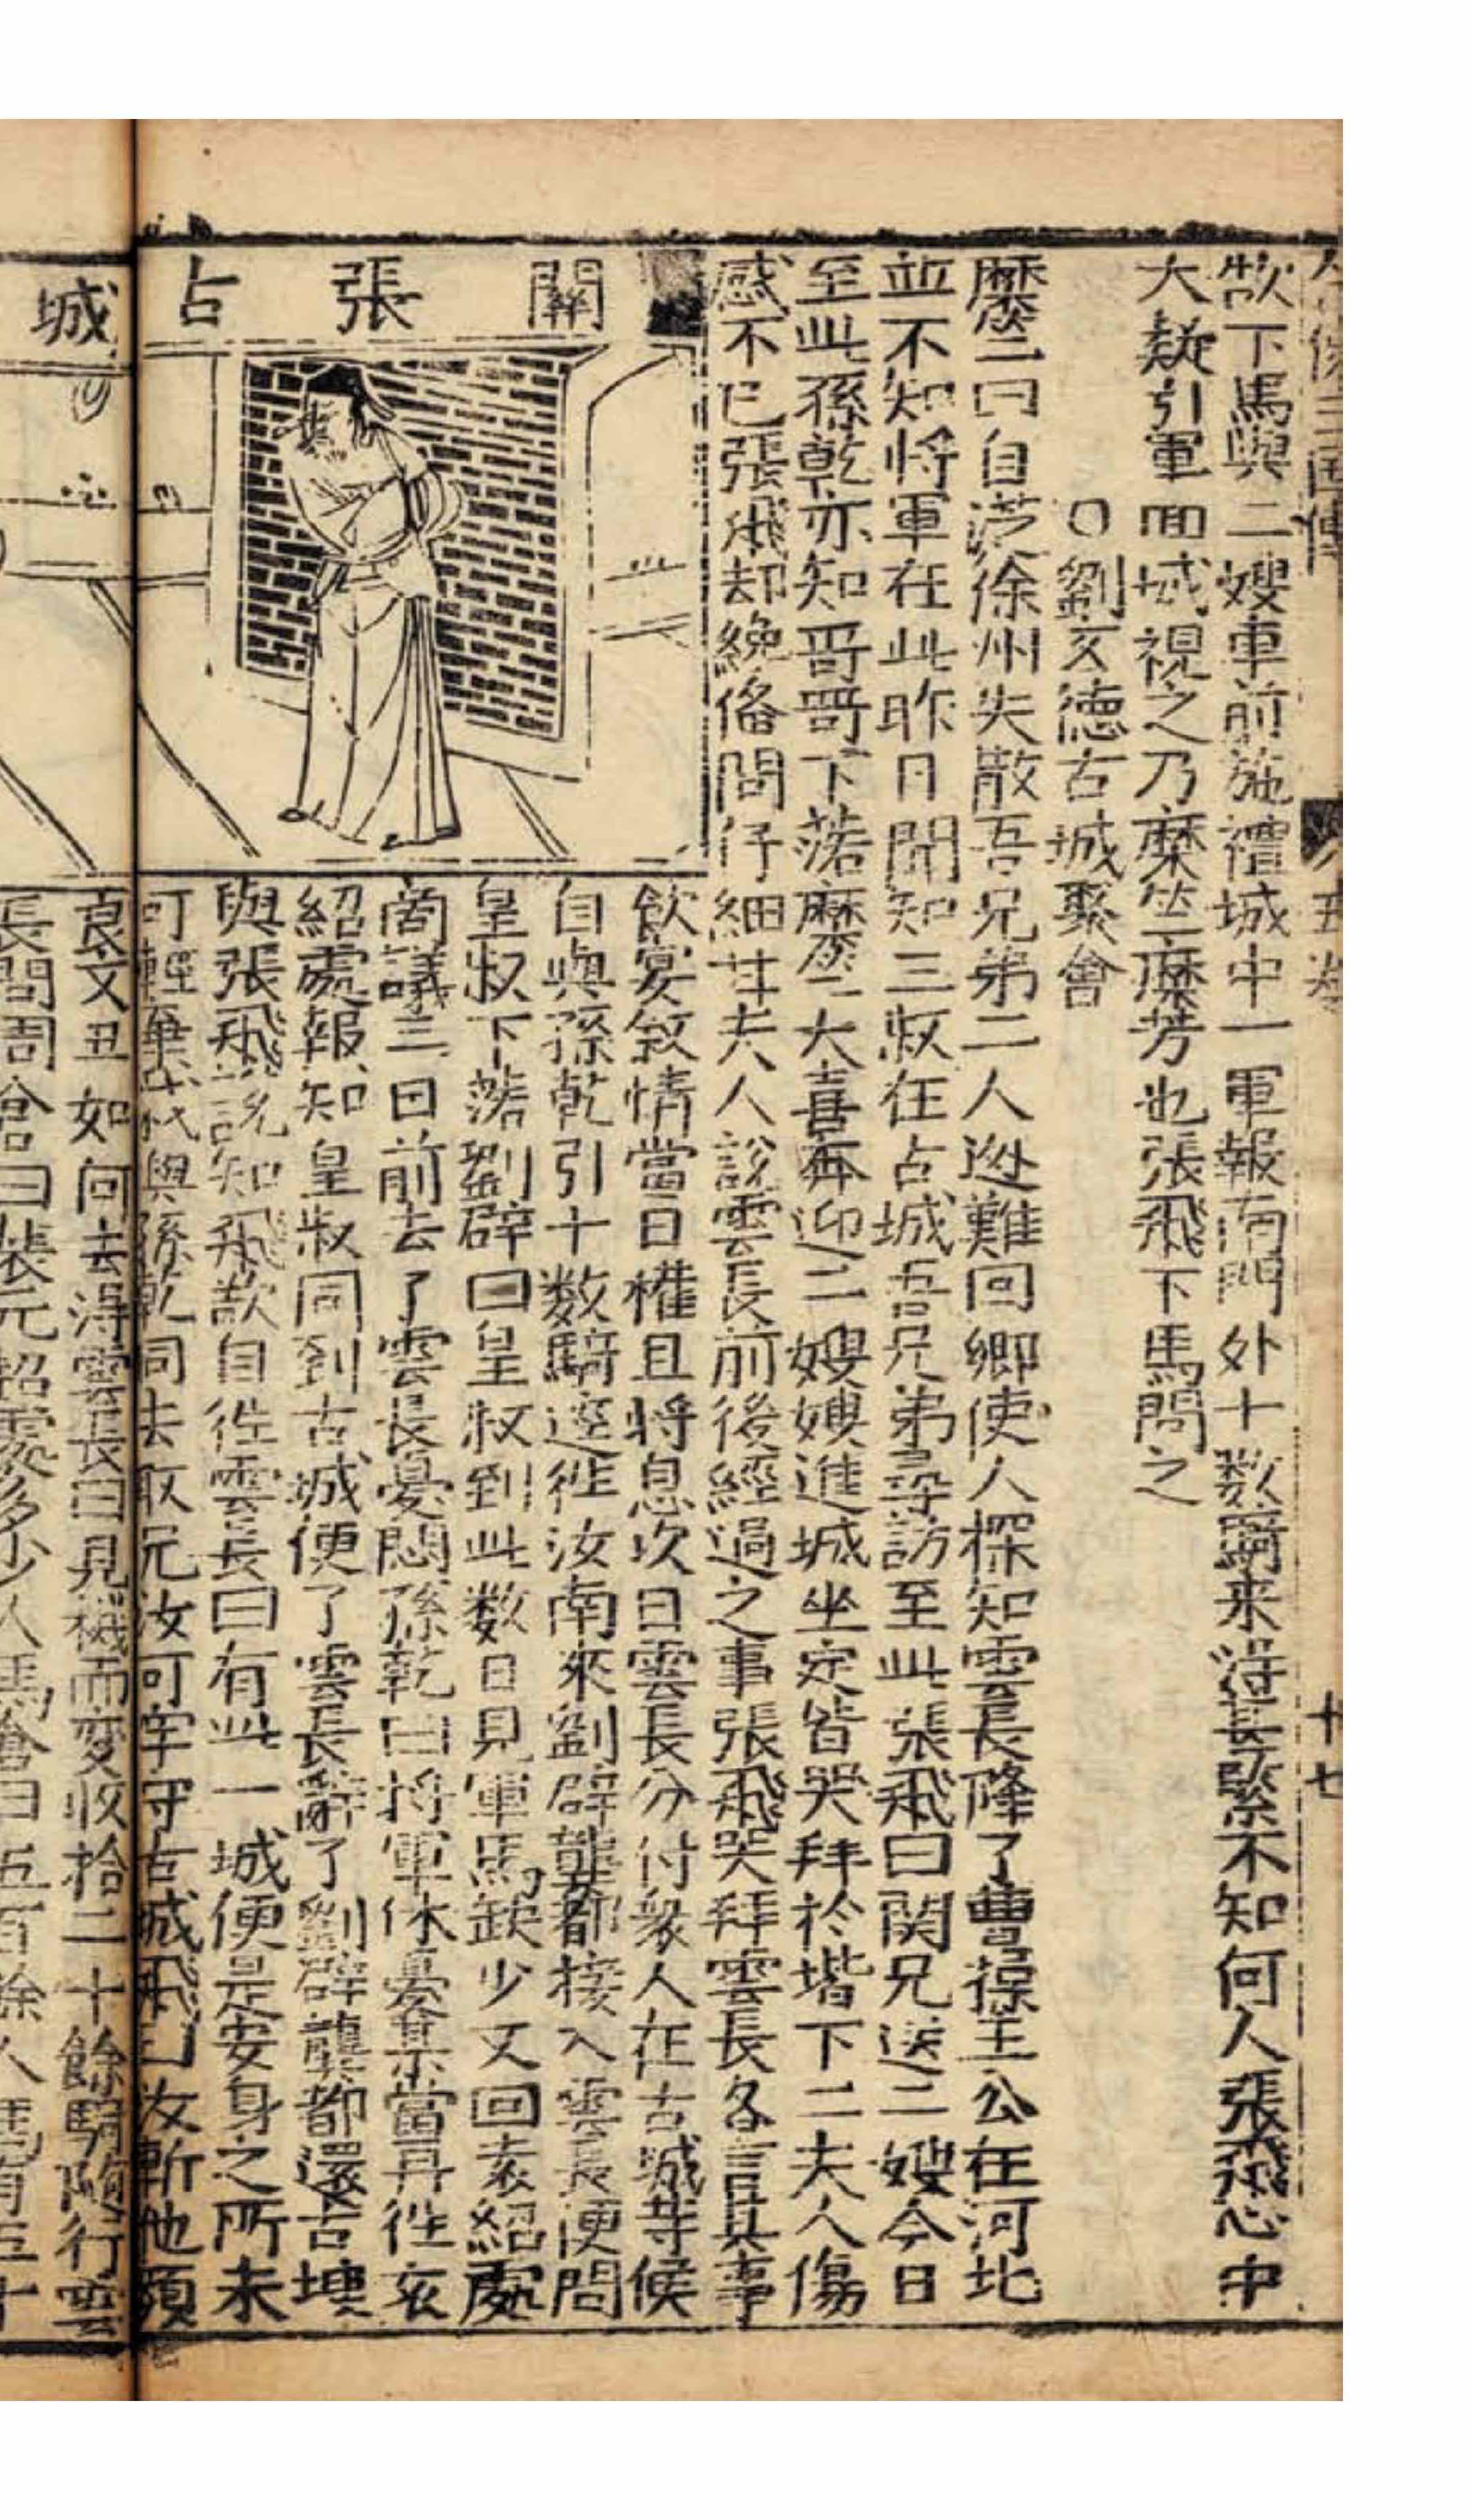 全像三國傳 五卷 十七
欲下馬與二嫂車前施禮城中一軍報南門外十数騎来得甚緊不知何人張飛心中
大疑引軍面城視之乃糜竺糜芳也張飛下馬問之
○劉玄德古城聚會
糜竺曰自從徐州失散吾兄弟二人迯難回鄉使人探知雲長降了曹操主公在河北
並不知將軍在此昨日聞知三叔在占城吾兄弟尋訪至此張飛曰関兄送二嫂今日
至此孫乾亦知哥哥下落糜竺大喜奔迎二嫂嫂進城坐定皆哭拜於堦下二夫人傷
感不已張飛却纔俻問仔細甘夫人說雲長前後經過之事張飛哭拜雲長各言其事
關張占城
飲宴敘情當日權且將息次日雲長分付衆人在古城等候
自與孫乾引十数騎逕徃汝南來劉辟龔都接入雲長便問
皇叔下落劉辟曰皇叔到此数日見軍馬缺少又回袁紹處
商議三日前去了雲長憂悶孫乾曰將軍休憂某當再徃袁
紹處報知皇叔同到古城便了雲長辭了劉辟龔都還古城
與張飛說知飛欲自徃雲長曰有此一城便是安身之所未
可輕棄我與孫乾同去取兄汝可牢守古城飛曰汝斬他顏
良文丑如何去得雲長曰見機而変收拾二十餘騎隨行雲
長問周倉曰裴元紹處多少人馬倉曰五百餘人馬有五十